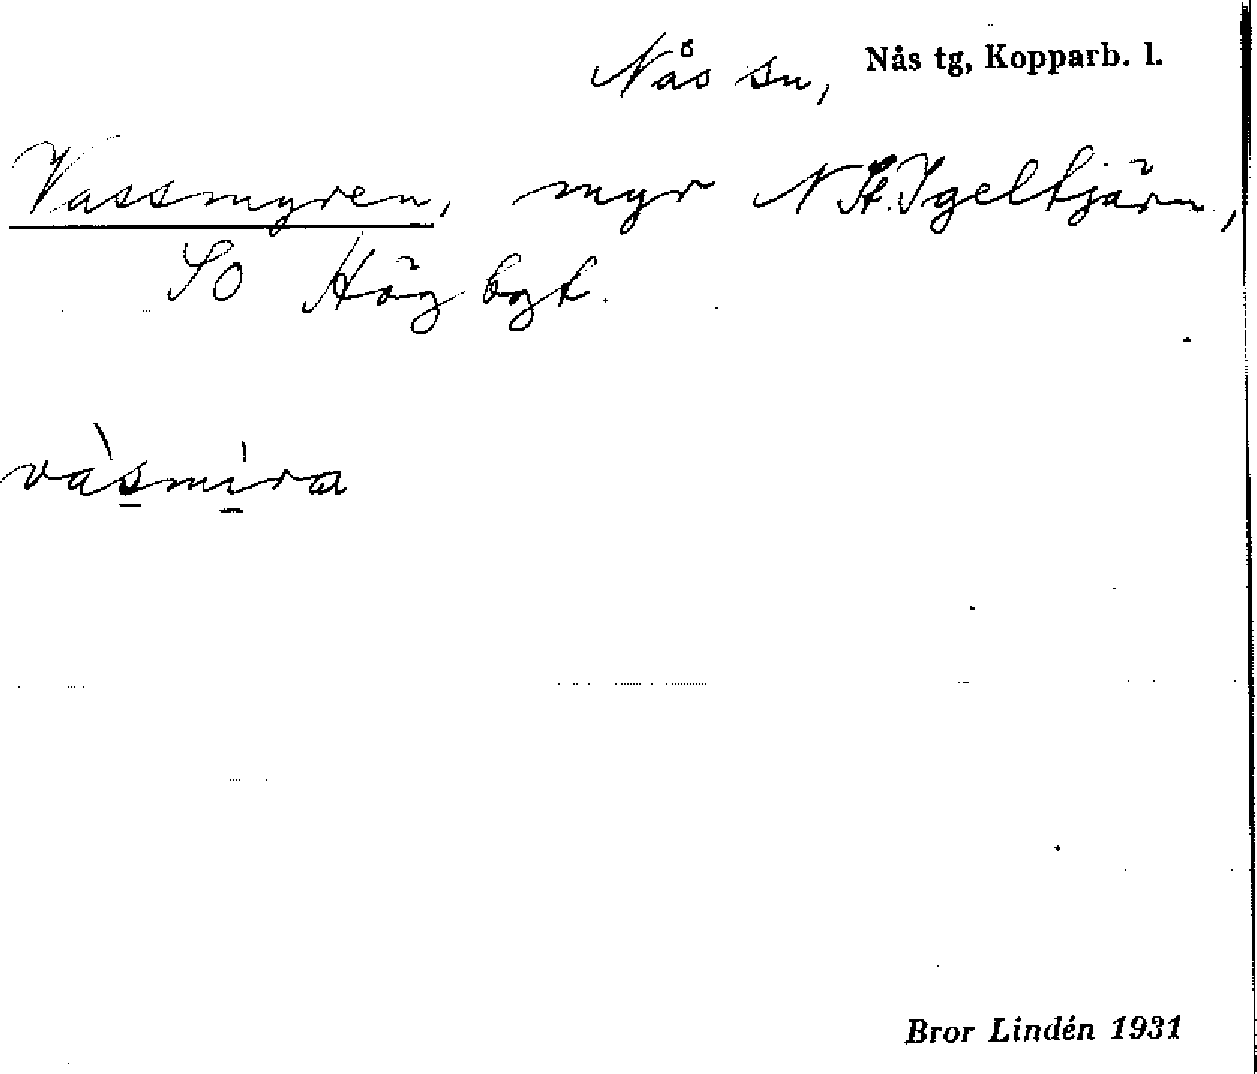 Nås sn, Nås tg, Kopparb. l.
Vassmyren, myr N St. Igeltjärn,
SO Högbgt.
vàsmira
Bror Lindén 1931